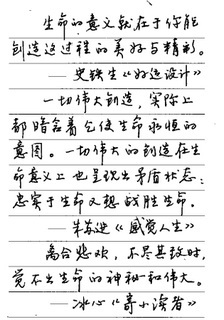 生命的意义就在于你能
创造这过程的美好与精彩。
——史铁生《好运设计》
一切伟大创造，实际上
都暗含着允使生命永恒的
意图。一切伟大的创造在生
命意义上也呈现出矛盾状态：
忠实于生命又想战胜生命。
——朱苏进《感觉人生》
离合悲欢，不尽其致时，
觉不出生命的神秘和伟大。
——冰心《寄小读者》